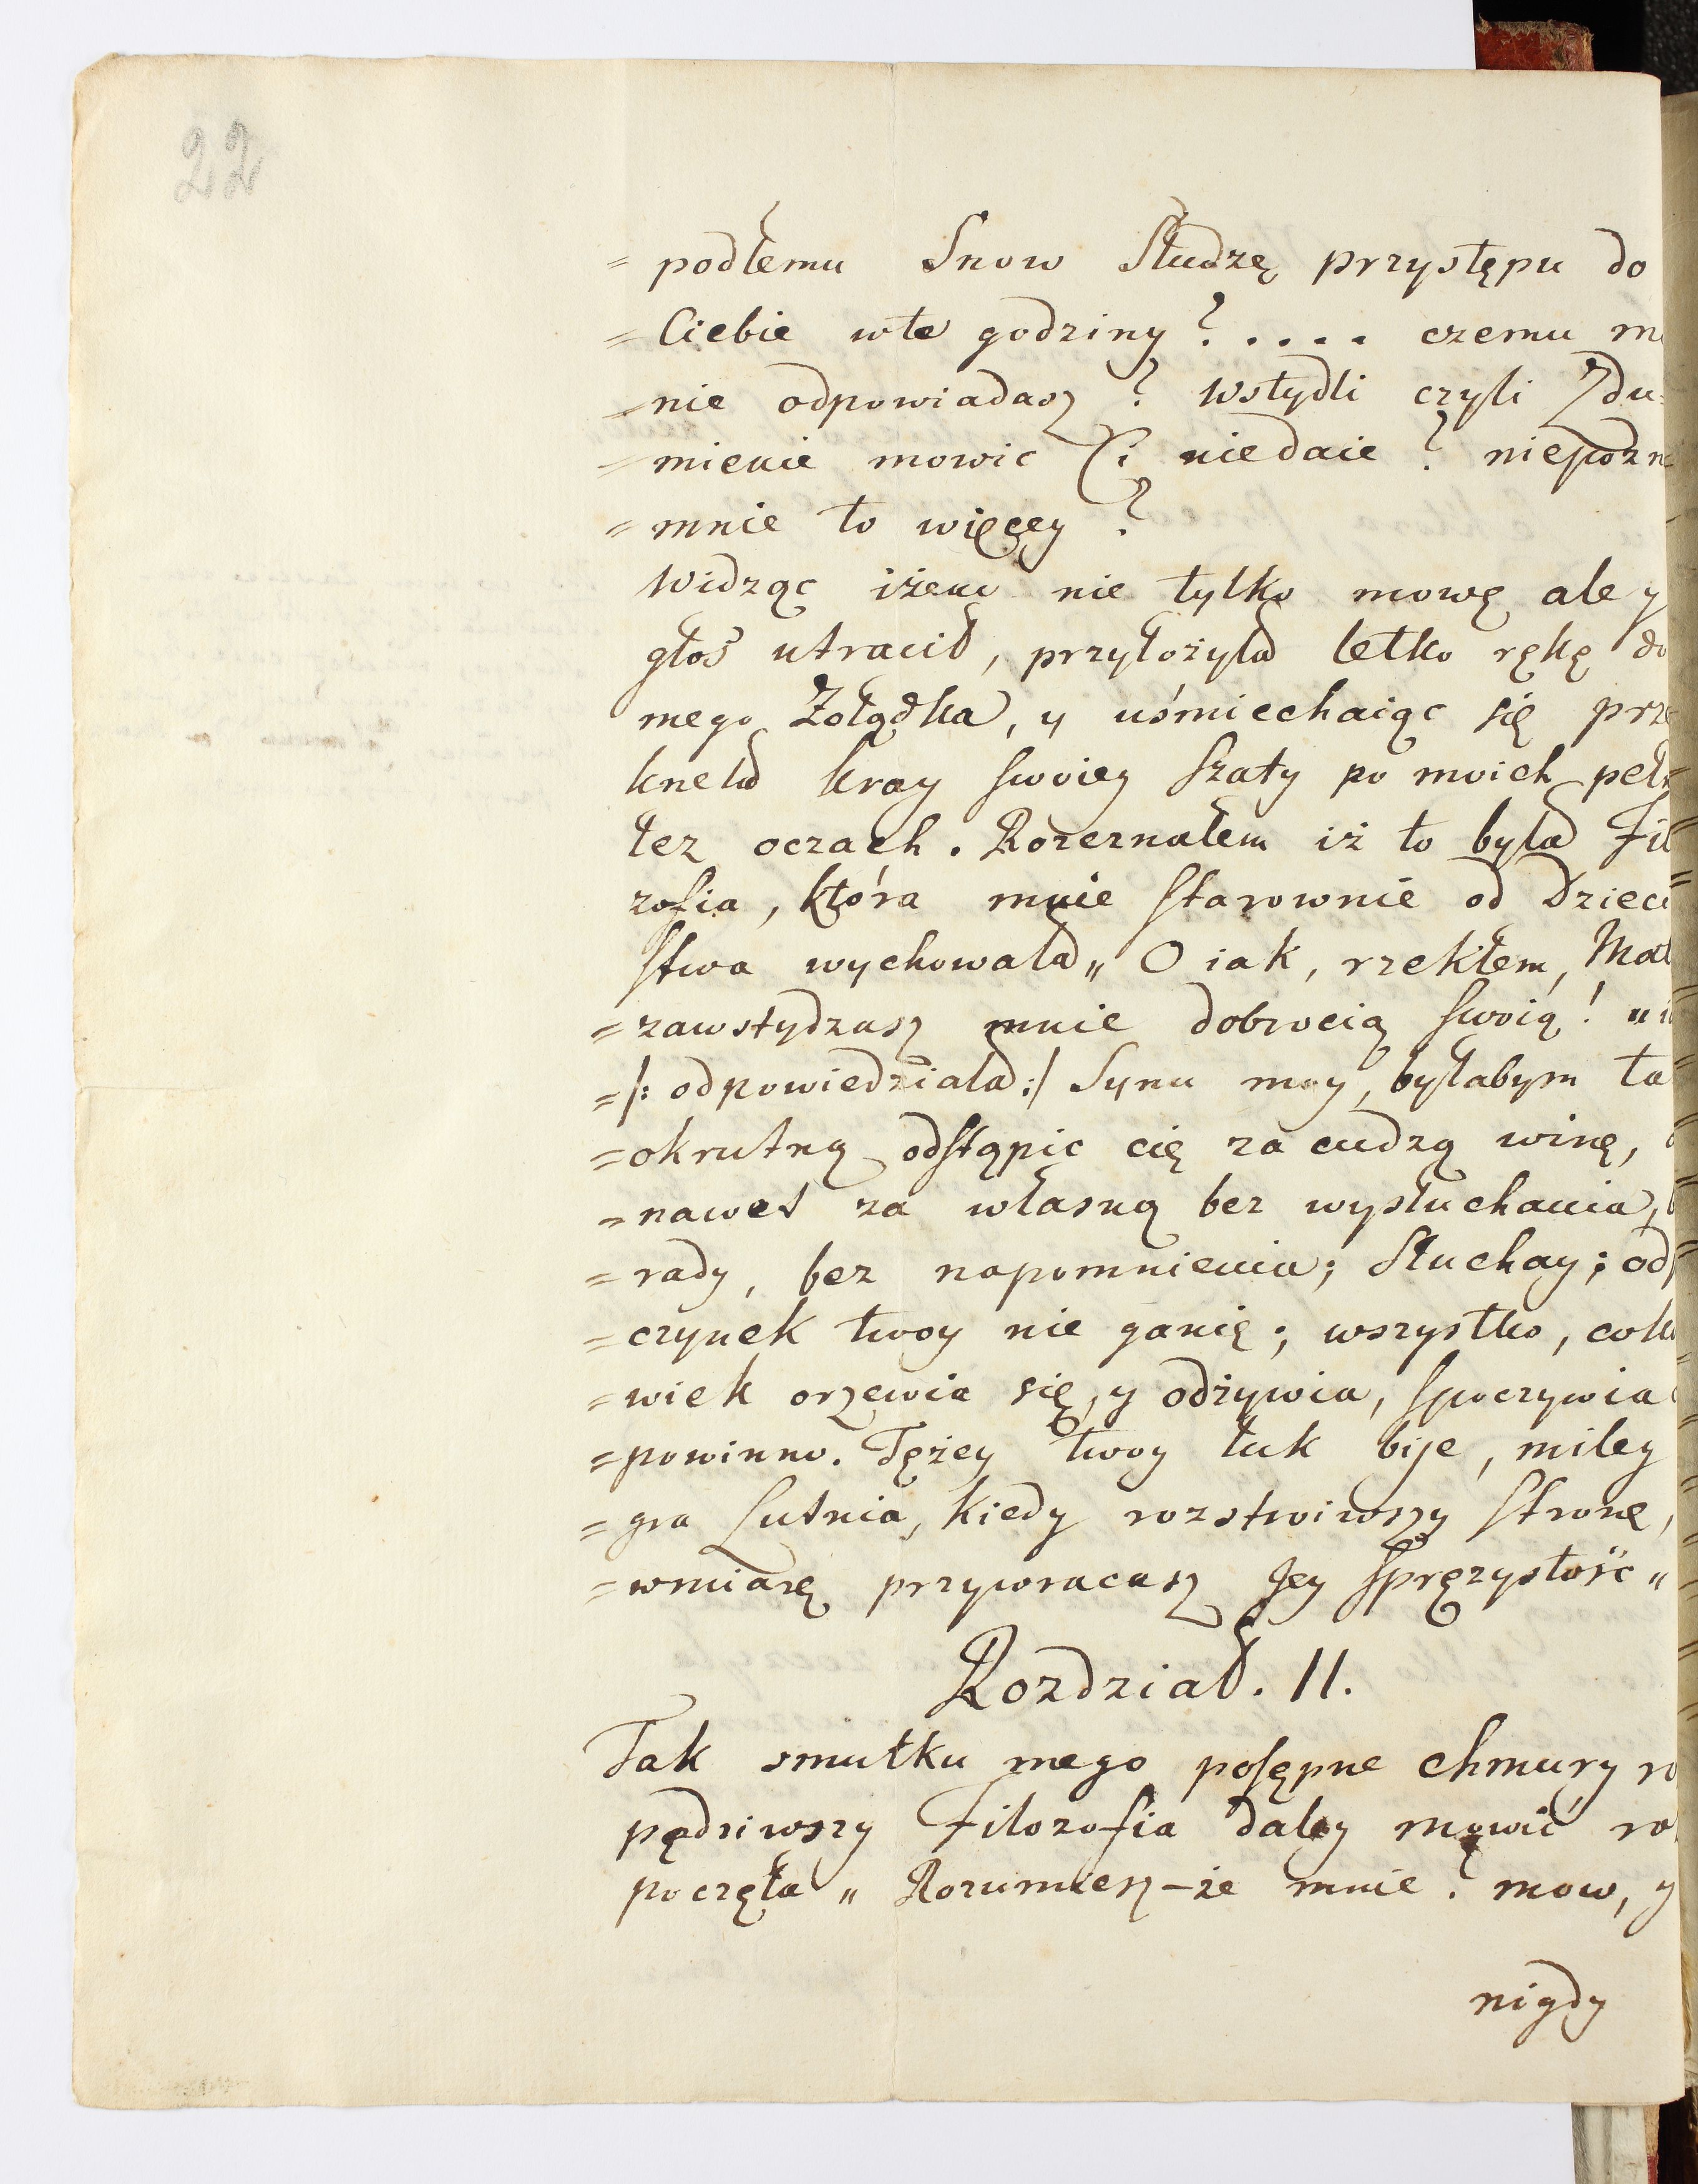 22
= podłemu Snow Słudzę przystępu do
= Ciebie wte godziny ? . . . . czemu m
= nie odpowiadasz ? wstydli czyli Zdu=
= mienie mowic Ci niedaie ? niepozn
= mnie to więcey ?
Widząc iżem nie tylko mowę ale y
głos utracił, przyłożyła letko rękę do
mego Żołądka, y uśmiechaiąc się prze
knęła kray swoiey szaty po moich peł=
łez oczach. Rozeznałem iż to była Fil
zofia, która mnie starownie od Dzieci
stwa wychowała „ O iak, rzekłem, Mat
= zawstydzasz mnie dobrocią swoią ! „ i
= /: odpowiedziała :/ Synu moy, byłabym ta
= okrutną odstąpic cię za cudzą winę,
= nawet za własną bez wysłuchania,
= rady, bez napomnienia; Słuchay; odp
= czynek twoy nie ganię; wszystko, cok
= wiek orzewia się, y odżywia, spoczywia
= powinno. Tężey twoy łuk bije, miley
= gra Lutnia, kiedy rozstroiwszy stronę,
= wmiarę przywracasz Jey sprężystość „
Rozdział. II.
Tak smutku mego posępne chmury ro
pędziwszy Filozofia daley mowić ro
poczęła „ Rozumiesz-że mnie ? mow, y
nigdy